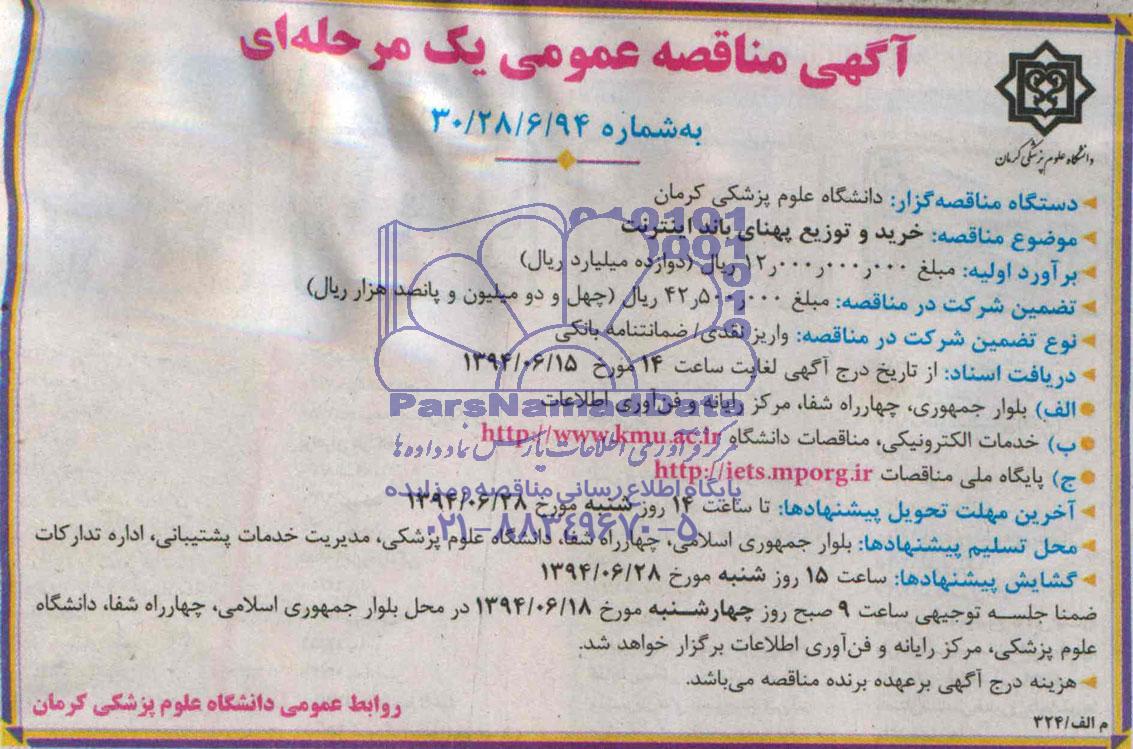 آگهی مناقصه عمومی یک مرحله‌ای
به‌شماره ۳۰/۲۸/۶/۹۴
دانشگاه علوم پزشکی کرمان
دستگاه مناقصه‌گزار: دانشگاه علوم پزشکی کرمان
موضوع مناقصه: خرید و توزیع پهنای باند اینترنت
برآورد اولیه: مبلغ ۱۲٫۰۰۰٫۰۰۰٫۰۰۰ ریال (دوازده میلیارد ریال)
تضمین شرکت در مناقصه: مبلغ ۴۲٫۵۰۰٫۰۰۰ ریال (چهل و دو میلیون و پانصد هزار ریال)
نوع تضمین شرکت در مناقصه: واریز نقدی/ ضمانتنامه بانکی
دریافت اسناد: از تاریخ درج آگهی لغایت ساعت ۱۴ مورخ ۱۳۹۴/۰۶/۱۵
الف) بلوار جمهوری، چهارراه شفا، مرکز رایانه و فن‌آوری اطلاعات
ParsNamadData
ب) خدمات الکترونیکی، مناقصات دانشگاه http://www.kmu.ac.ir
مرکز فرآوری اطلاعات پارس نماد داده‌ها
ج) پایگاه ملی مناقصات http://iets.mporg.ir
پایگاه اطلاع رسانی مناقصه و مزایده
آخرین مهلت تحویل پیشنهادها: تا ساعت ۱۴ روز شنبه مورخ ۱۳۹۴/۰۶/۲۸
۰۲۱-۸۸۳۴۹۶۷۰-۵
محل تسلیم پیشنهادها: بلوار جمهوری اسلامی، چهارراه شفا، دانشگاه علوم پزشکی، مدیریت خدمات پشتیبانی، اداره تدارکات
گشایش پیشنهادها: ساعت ۱۵ روز شنبه مورخ ۱۳۹۴/۰۶/۲۸
ضمنا جلسه توجیهی ساعت ۹ صبح روز چهارشنبه مورخ ۱۳۹۴/۰۶/۱۸ در محل بلوار جمهوری اسلامی، چهارراه شفا، دانشگاه
علوم پزشکی، مرکز رایانه و فن‌آوری اطلاعات برگزار خواهد شد.
هزینه درج آگهی برعهده برنده مناقصه می‌باشد.
روابط عمومی دانشگاه علوم پزشکی کرمان
م الف/۳۲۴